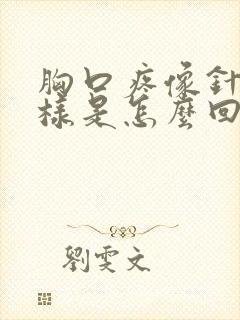 胸口疼像針
樣是怎麼回
劉雯文